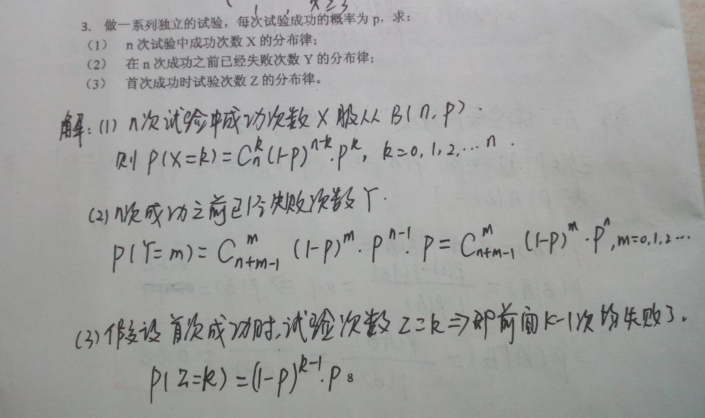 3. 做一系列独立的试验，每次试验成功的概率为 p，求：
(1) n 次试验中成功次数 X 的分布律；
(2) 在 n 次成功之前已经失败次数 Y 的分布律；
(3) 首次成功时试验次数 Z 的分布律。
解：(1) n次试验中成功次数 X 服从 B(n, p).
则 P(X=k) = C_n^k (1-p)^{n-k}·p^k, k=0, 1, 2, … n.
(2) n次成功之前已经失败次数 Y.
P(Y=m) = C_{n+m-1}^m (1-p)^m·p^{n-1}·p = C_{n+m-1}^m (1-p)^m·p^n, m=0,1,2…
(3) 假设首次成功时,试验次数 Z=k ⇒ 即前面k-1次均失败了.
P(Z=k) = (1-p)^{k-1}·p。